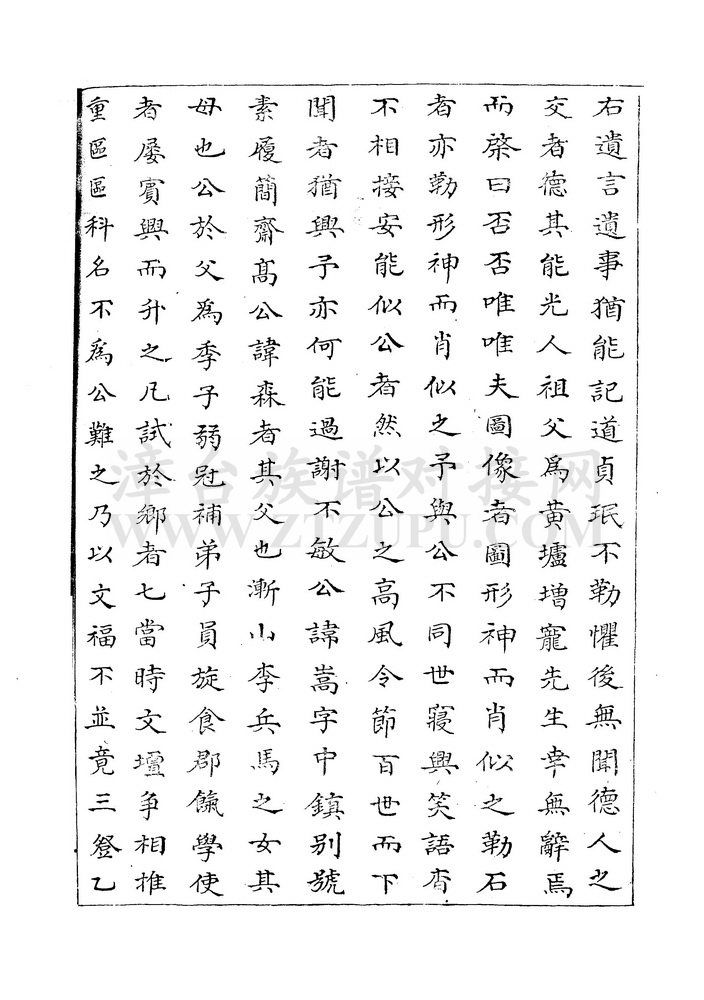 右遺言遺事猶能記道貞珉不勒懼後無聞德人之
交者德其能光人祖父爲黃壚增寵先生幸無辭焉
而棨曰否否唯唯夫圖像者圖形神而肖似之勒石
者亦勒形神而肖似之予與公不同世寢興笑語杳
不相接安能似公者然以公之高風令節百世而下
聞者猶興予亦何能過謝不敏公諱嵩字中鎮別號
素履簡齋高公諱森者其父也漸山李兵馬之女其
母也公於父爲季子弱冠補弟子員旋食郡餼學使
者屡賓興而升之凡試於鄉者七當時文壇爭相推
重區區科名不爲公難之乃以文福不並竟三登乙
漳台族谱对接网
WWW.ZTZUPU.COM